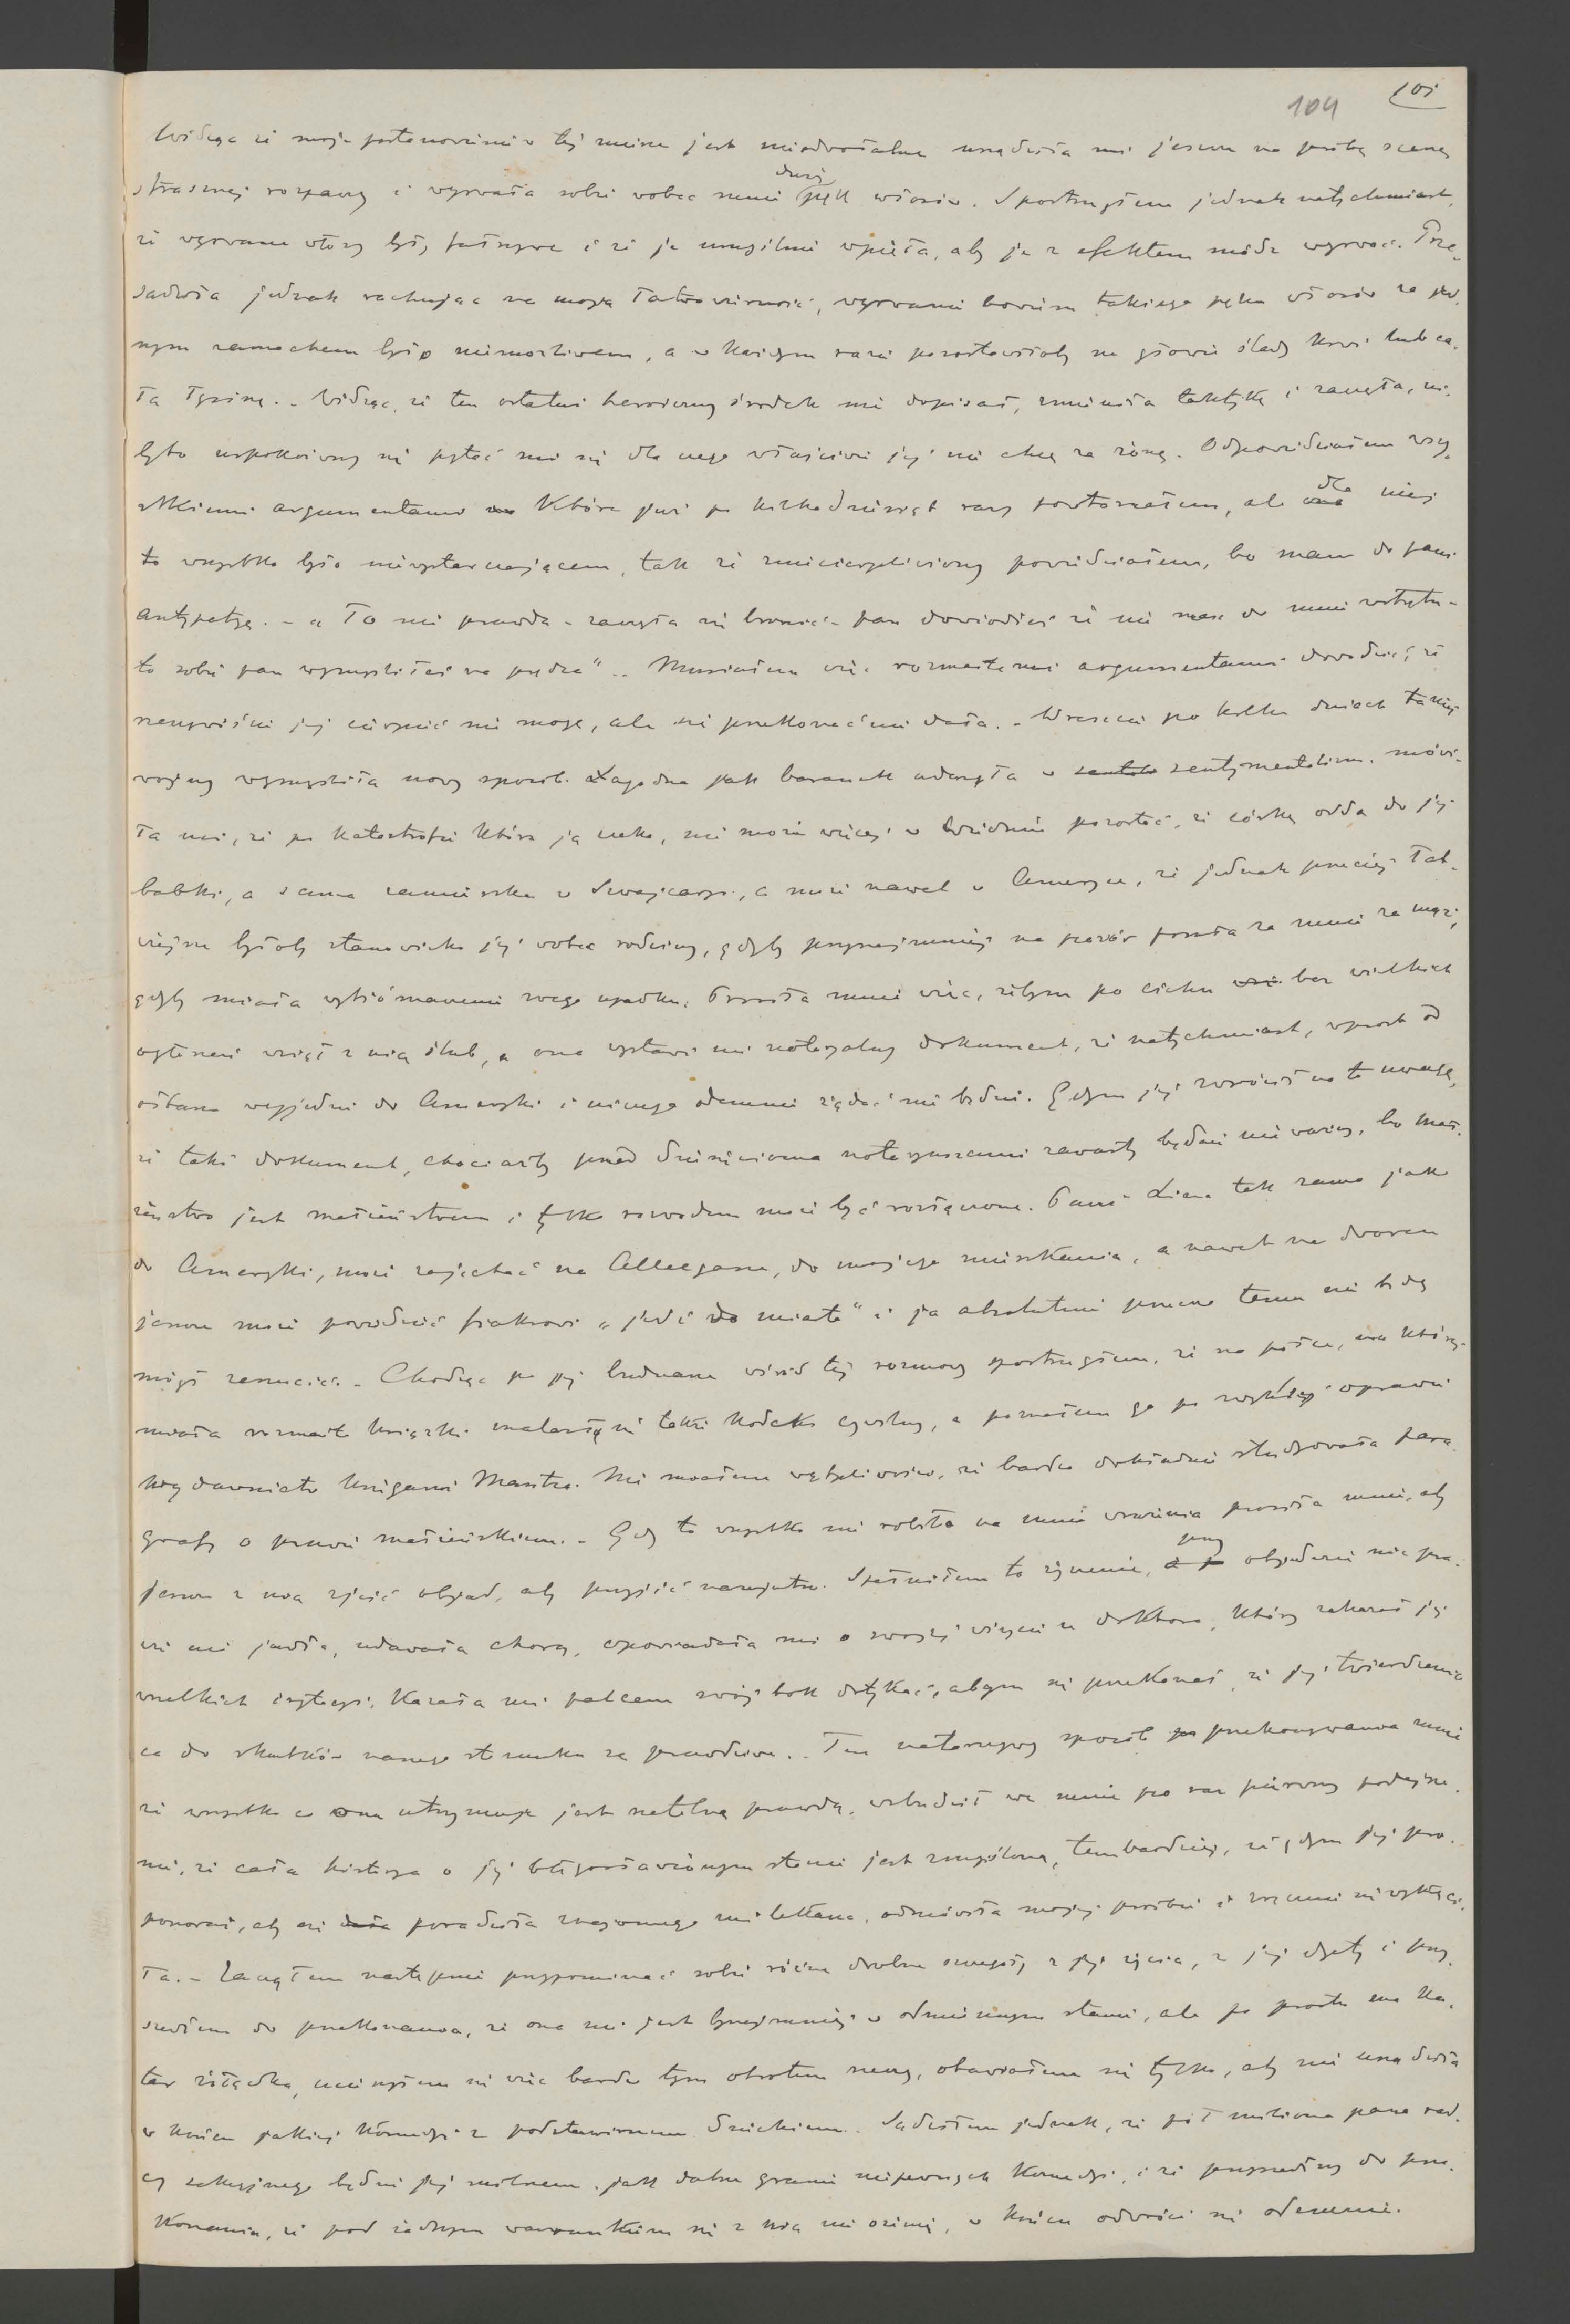 101
104
Widząc że moje postanowienie w tej mierze jest nieodwołalne urządziła mi jeszcze na próbę scenę
strasznej rozpaczy i wyrwała sobie wobec mnie duży pęk włosów. Spostrzegłem jednak natychmiast,
że wyrwane włosy były fałszywe i że je umyślnie wpięła, aby je z efektem módz wyrwać. Prze-
sadziła jednak rachując na moją łatwowierność, wyrwanie bowiem takiego pęku włosów za jed-
nym zamachem było niemożliwem, a w każdym razie pozostawiłoby na głowie ślady krwi lub ca-
łą łysinę. - Widząc, że ten ostatni heroiczny środek nie dopisał, zmieniła taktykę i zaczęła, ni-
byto uspokoiwszy się pytać mnie się dla czego właściwie jej nie chcę za żonę. Odpowiedziałem wszy-
stkiemi argumentami które już po kilkadziesiąt razy powtarzałem, ale dla niej
to wszystko było niewystarczającem, tak że zniecierpliwiony powiedziałem, bo mam do pani
antypatyę. - „To nie prawda - zaczęła się bronić - pan dowiodłeś że nie masz do mnie wstrętu -
to sobie pan wymyśliłeś na prędce". - Musiałem więc rozmaitemi argumentami dowodzić, że
rzeczywiście jej cierpieć nie mogę, ale się przekonać nie dała. - Wreszcie po kilku dniach takiej
wojny wymyśliła nowy sposób. Łagodna jak baranek uderzyła w sentymentalizm. mówi-
ła mi, że po katastrofie która ją czeka, nie może więcej w Wiedniu pozostać, że córkę odda do jej
babki, a sama zamieszka w Szwajcaryi, a może nawet w Ameryce, że jednak przeciez łat-
wiejsze byłoby stanowisko jej wobec rodziny, gdyby przynajmniej na pozór poszła za mnie za mąż,
gdyby miała wytłómaczenie swego upadku. Prosiła mnie więc, żebym po cichu bez wielkich
ogłoszeń wziął z nią ślub, a ona wystawi mi notaryalny dokument, że natychmiast, wprost od
ołtarza wyjedzie do Ameryki i niczego odemnie żądać nie będzie. Gdym jej zwrócił na to uwagę,
że taki dokument, chociażby przed dziesięcioma notaryuszami zawarty będzie nieważny, bo mał-
żeństwo jest małżeństwem i tylko rozwodem może być rozłączone. Pani Liza tak samo jak
do Ameryki, może zajechać na Alleegasse, do mojego mieszkania, a nawet na dworcu
jeszcze może powiedzieć fiakrowi „jedź do miasta" i ja absolutnie przeciw temu nie będę
mógł zarzucić. - Chodząc po jej buduarze wśród tej rozmowy spostrzegłem, że na półce, na której
miała rozmaite książki znalazł się także kodeks cywilny, a poznałem go po zwykłej oprawie
wydawnictw księgarni Mantza. Nie miałem wątpliwości, że bardzo dokładnie studyowała para-
grafy o prawie małżeńskiem. - Gdy to wszystko nie robiło na mnie wrażenia prosiła mnie, aby
jeszcze z nią zjeść objad, aby przyjść nazajutrz. Spełniłem to życzenie, przy objedzie nic pra-
wie nie jadła, udawała chorą, opowiadała mi o swojej wizycie u doktora, który zakazał jej
wszelkich irytacyi, kazała mi palcem swój bok dotykać, abym się przekonał, że jej twierdzenia
co do skutków naszego stosunku są prawdziwe. - Ten natarczywy sposób przekonywania mnie
że wszystko co ona utrzymuje jest rzetelną prawdą, wzbudził we mnie po raz pierwszy podejrze-
nie, że cała historya o jej błogosławionym stanie jest zmyślona, tembardziej, że gdym jej pro-
ponował, aby się poradziła znajomego mi lekarza, odmówiła mojej prośbie i zręcznie się wykręci-
ła. - Zacząłem następnie przypominać sobie różne drobne szczegóły z jej życia, z jej dyety i przy-
szedłem do przekonania, że ona nie jest bynajmniej w odmiennym stanie, ale po prostu ma ka-
tar żołądka, ucieszyłem się więc bardzo tym obrotem rzeczy, obawiałem się tylko, aby mi nie urządziła
w końcu jakiej komedyi z podstawionem dzieckiem. Sądziłem jednak, że pół miliona pana rad-
cy sekcyjnego będzie jej milszem, jak dalsze granie niepewnych komedyi, i że przyszedłszy do prze-
konania, że pod żadnym warunkiem się z nią nie ożenię, w końcu odwróci się odemnie.